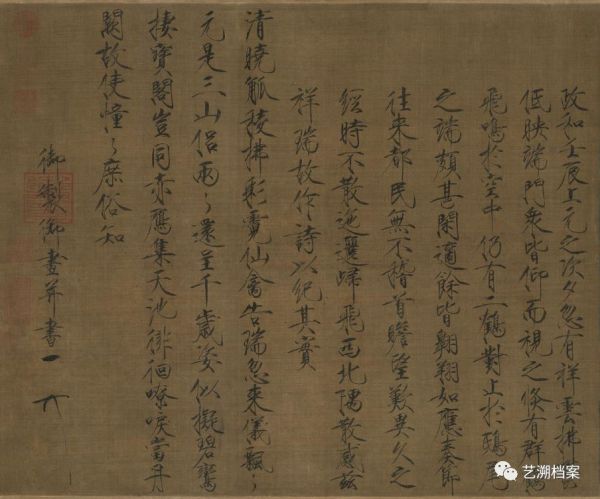 政和壬辰上元之次夕忽有祥雲拂鬱
低映端門衆皆仰而視之倏有群鶴
飛鳴於空中仍有二鶴對止於鴟尾
之端頗甚閑適餘皆翱翔如應奏節
往來都民無不稽首瞻望歎異久之
經時不散迤邐歸飛西北隅散感茲
祥瑞故作詩以紀其實
清曉觚稜拂彩霓仙禽告瑞忽來儀飄々
元是三山侶兩々還呈千歲姿似擬碧鸞
棲寶閣豈同赤鴈集天池徘徊嘹唳當丹
闕故使憧々庶俗知
御製御畫并書
艺溯档案